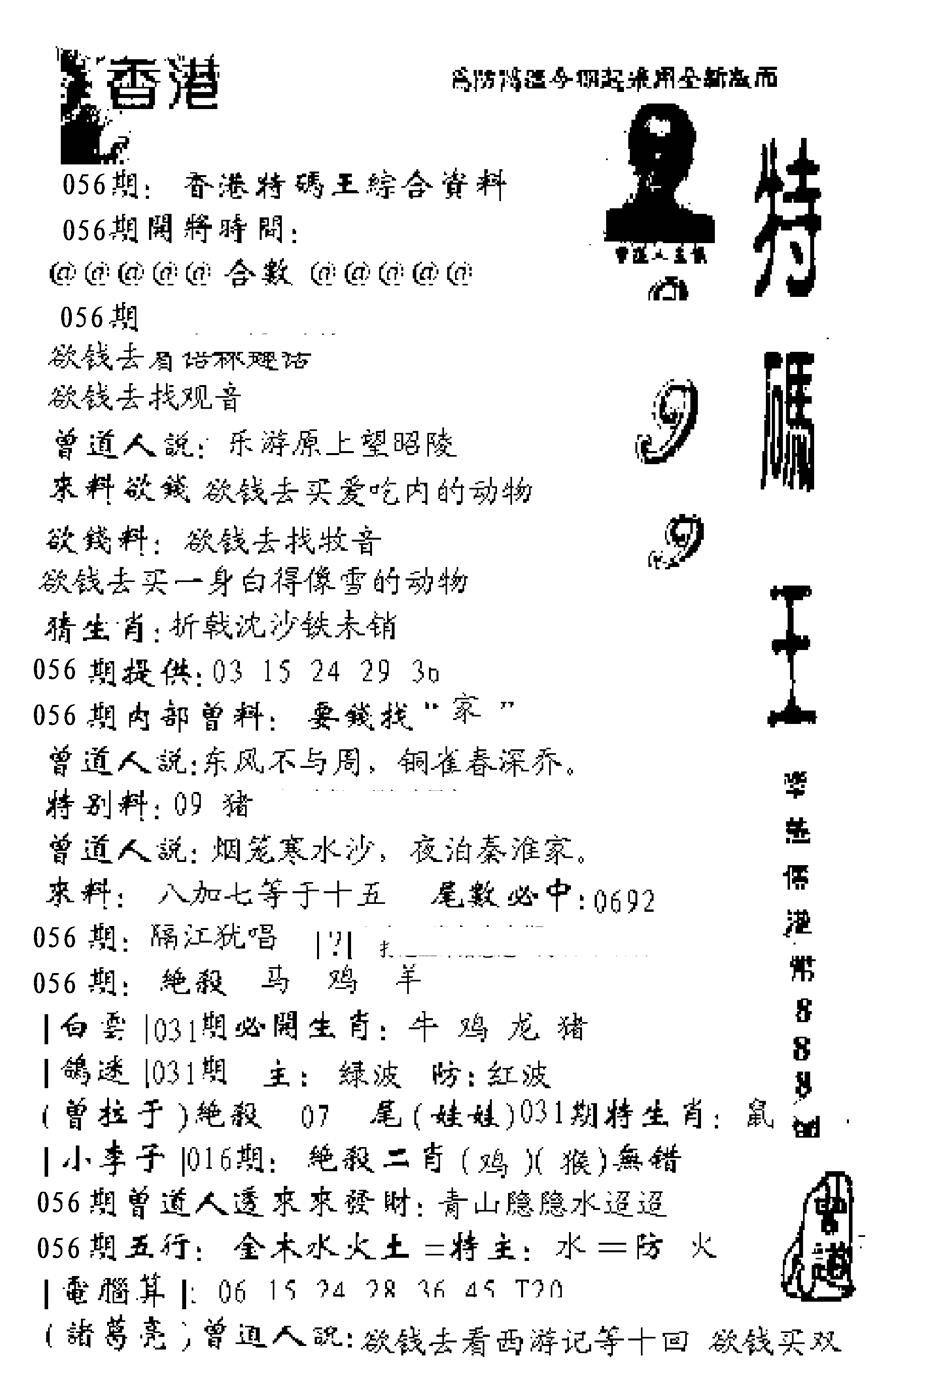 香港
056期：香港特碼王綜合資料
056期開將時間：
@@@@@合數@@@@@
056期
欲钱去
欲钱去找观音
曾道人説：乐游原上望昭陵
來料欲錢 欲钱去买爱吃内的动物
欲錢料：欲钱去找牧音
欲钱去买一身白得像雪的动物
猜生肖:折戟沈沙铁未销
056期提供:03 15 24 29 36
056期内部曾料：要錢找“家”
曾道人説:东风不与周，铜雀春深乔。
特别料:09 猪
曾道人説:烟笼寒水沙，夜泊秦淮家。
來料：八加七等于十五 尾數必中:0692
056期：隔江犹唱 |?|
056期：絶殺 马 鸡 羊
|白雲|031期必開生肖：牛 鸡 龙 猪
|鴿迷|031期 主：绿波 防:红波
(曾拉于)絶殺 07 尾(娃娃)031期特生肖：鼠
|小李子|016期：絶殺二肖(鸡)(猴)無錯
056期曾道人透來來發財:青山隐隐水迢迢
056期五行：金木水火土=特主：水=防 火
|電腦算|: 06 15 24 28 36 45 T20
(諸葛亮)曾道人説:欲钱去看西游记等十回 欲钱买双
特
碼
王
9
9
港
幣
8
8
8
曾道